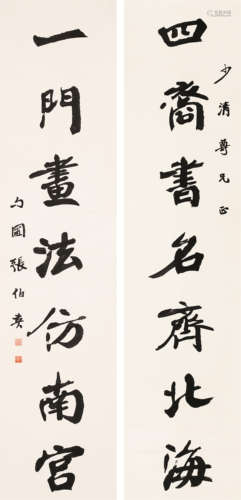 四裔書名齊北海
少清尊兄正
一門畫法仿南宮
勺圃張伯英